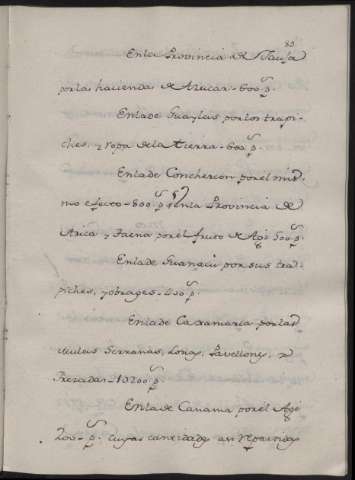 83
En la Provincia de Jauja
por la hacienda de Azucar - 600 p.
En la de Guaylas por los trapi-
ches, y ropa de la tierra - 600 p.
En la de Conchucos por el mis-
mo efecto - 800 p. en la Provincia de
Arica y Tacna por el fruto de Agi 500 p.
En la de Guanuco por sus tra-
piches, y obrages - 400 p.
En la de Caxamarca por las
Serranas, Lonas, Pavellones, y
Frezadas - 10200 p.
En la de Camana por el Agi
200 p. cuyas cantidades asi repartidas